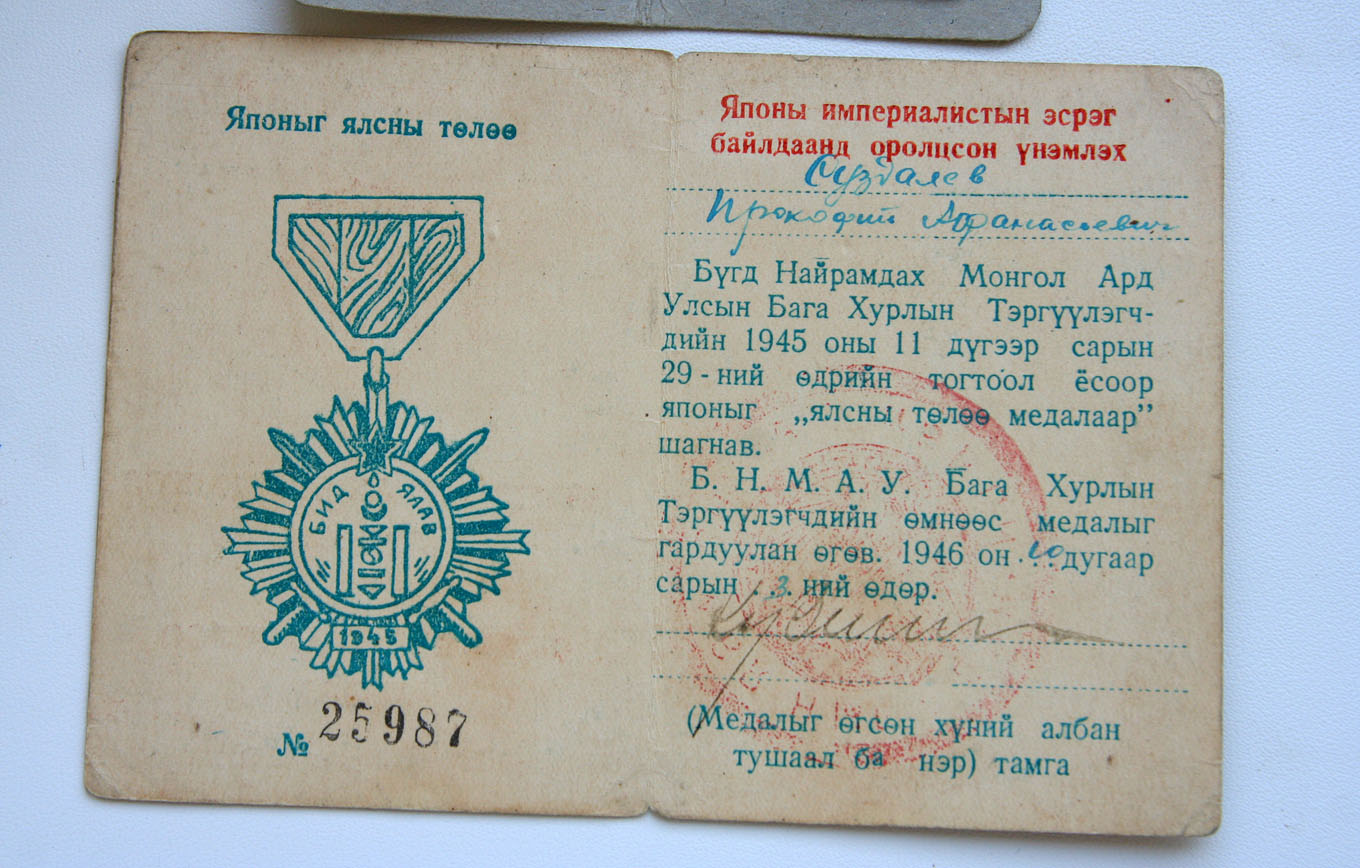 Японыг ялсны төлөө
БИД ЯЛАВ
1945
№ 25987
Японы империалистын эсрэг
байлдаанд оролцсон үнэмлэх
Суздалев
Прокофий Афанасьевич
Бүгд Найрамдах Монгол Ард
Улсын Бага Хурлын Тэргүүлэгч-
дийн 1945 оны 11 дүгээр сарын
29-ний өдрийн тогтоол ёсоор
японыг „ялсны төлөө медалаар”
шагнав.
Б. Н. М. А. У. Бага Хурлын
Тэргүүлэгчдийн өмнөөс медалыг
гардуулан өгөв. 1946 он 10 дугаар
сарын 3 ний өдөр.
(Медалыг өгсөн хүний албан
тушаал ба нэр) тамга